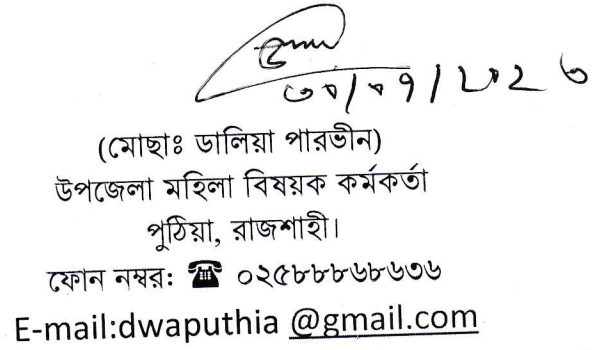 ৩০/০৭/২০২৩
(মোছাঃ ডালিয়া পারভীন)
উপজেলা মহিলা বিষয়ক কর্মকর্তা
পুঠিয়া, রাজশাহী।
ফোন নম্বর: ☎ ০২৫৮৮৮৬৮৬৩৬
E-mail:dwaputhia @gmail.com